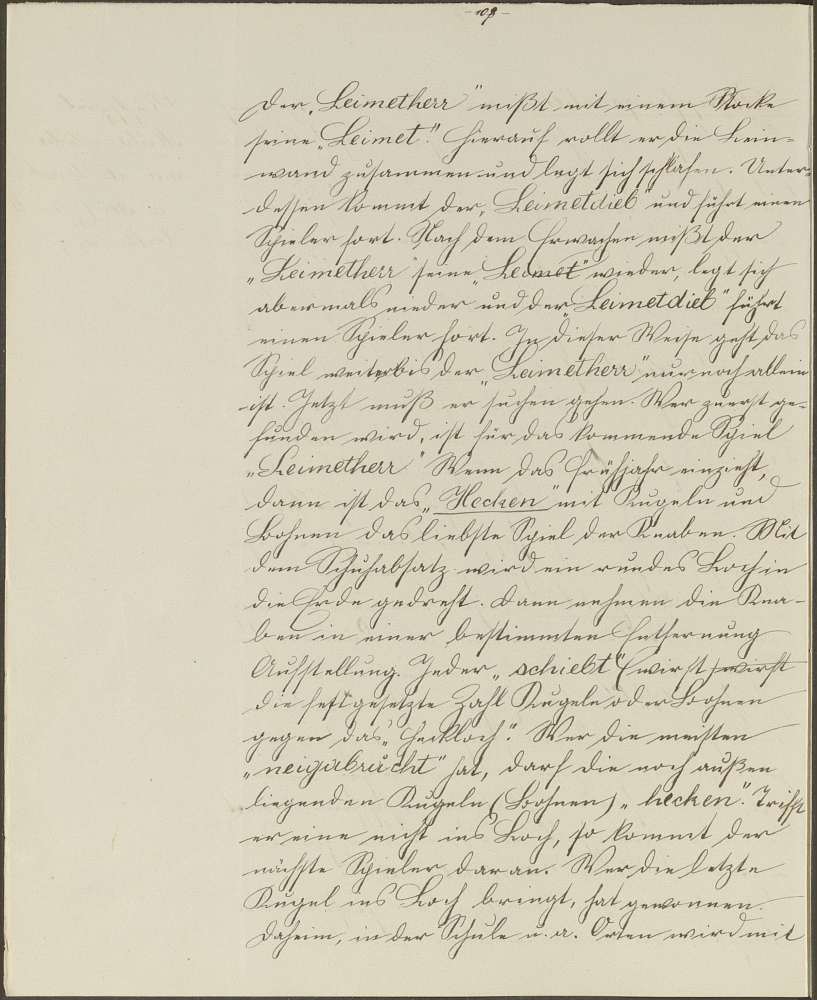 - 108 -
Der „Leimetherr" mißt mit einem Stocke
seine „Leimet". Hierauf rollt er die Lein-
wand zusammen und legt sich schlafen. Unter-
dessen kommt der „Leimetdieb" und führt einen
Spieler fort. Nach dem Erwachen mißt der
„Leimetherr" seine „Leimet" wieder, legt sich
abermals nieder und der „Leimetdieb" führt
einen Spieler fort. In dieser Weise geht das
Spiel weiter bis der „Leimetherr" nur noch allein
ist. Jetzt muß er suchen gehen. Wer zuerst ge-
funden wird, ist für das kommende Spiel
„Leimetherr" Wenn das Frühjahr einzieht,
dann ist das „Hecken" mit Kugeln und
Bohnen das liebste Spiel der Knaben. Mit
dem Schuhabsatz wird ein rundes Loch in
die Erde gedreht. Dann nehmen die Kna-
ben in einer bestimmten Entfernung
Aufstellung. Jeder „schiebt" (wirft) wirft
die festgesetzte Zahl Kugeln oder Bohnen
gegen das „Heckloch". Wer die meisten
„neigabrácht" hat, darf die noch außen
liegenden Kugeln (Bohnen) „hecken". Trifft
er eine nicht ins Loch, so kommt der
nächste Spieler daran. Wer die letzte
Kugel ins Loch bringt, hat gewonnen.
Daheim, in der Schule u. a. Orten wird mit